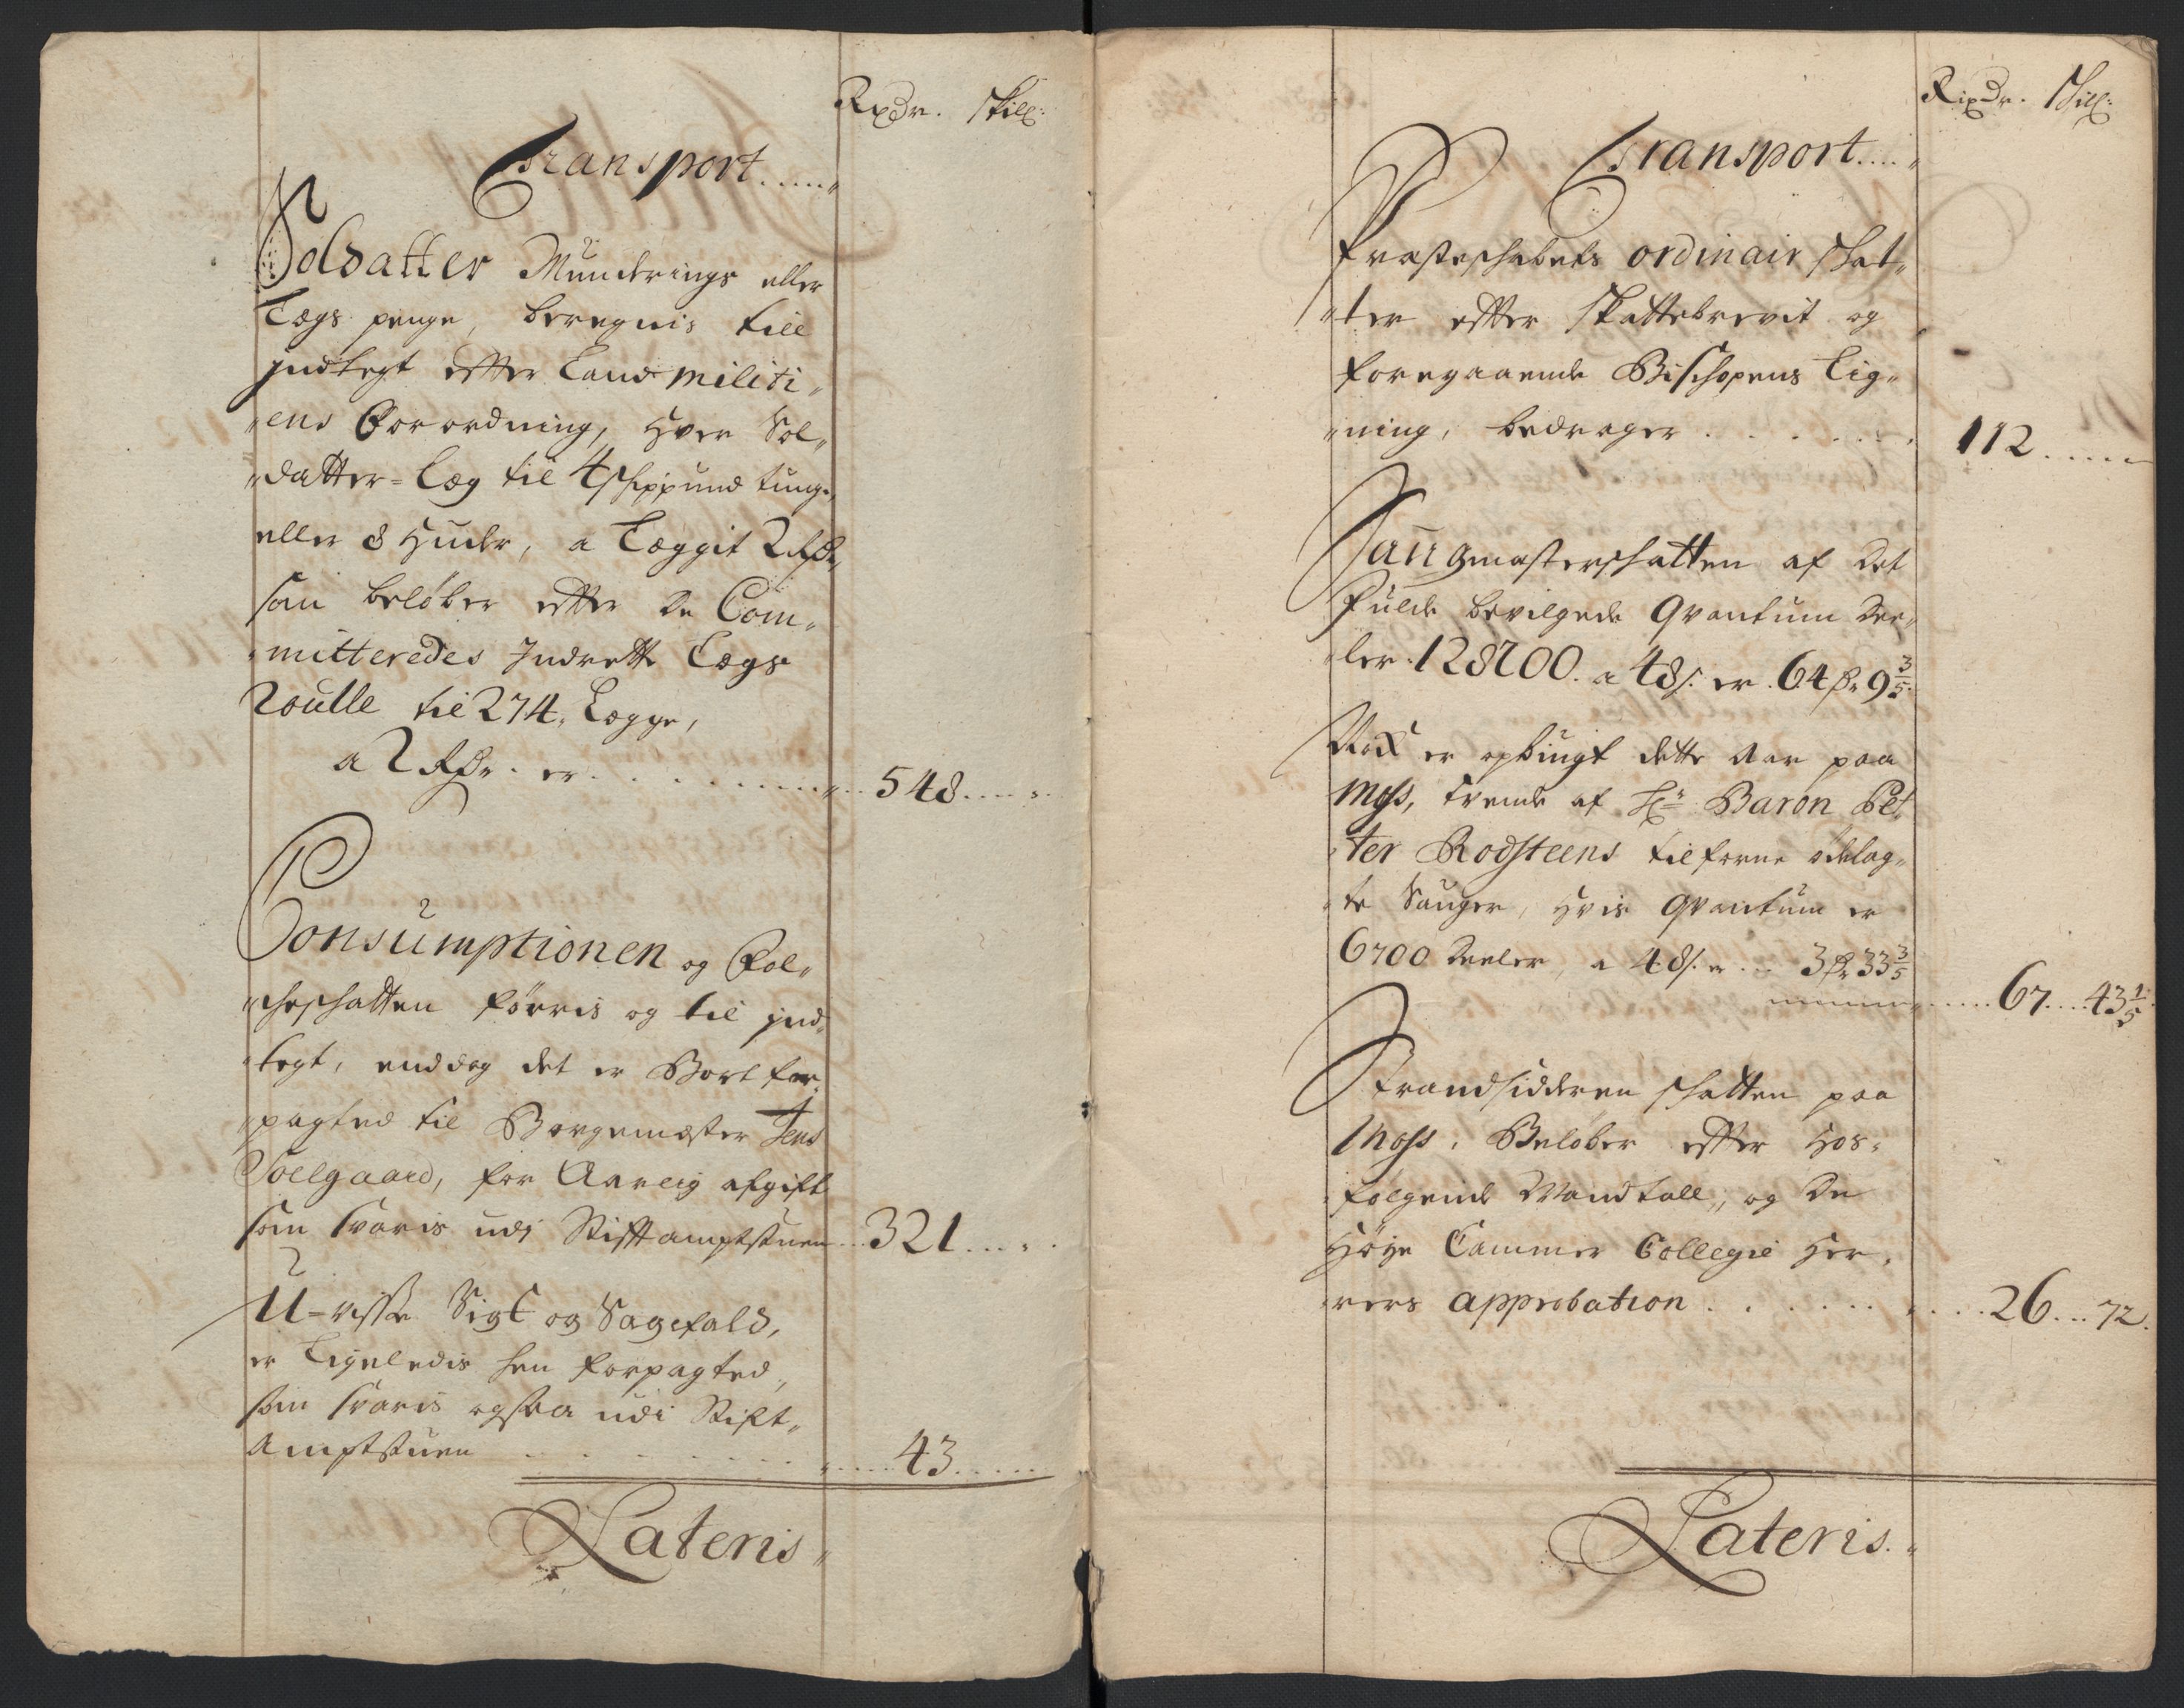 Rxdr. Skill:
Transport.....
Soldatter Munderings eller
Lægs penge, beregnis till
jndtegt efter Land militi„
„ens Forordning, hver Sol„
„datter=Læg til 4 Schippund tunge
eller 8 Huder, a Lægget 2 Rdr,
som beløber efter de Com„
„mitteredes Indrette Lægs
Roulle til 274. Lægge,
a 2 Rdr. er . . . . . . 548.....
Consumptionen og Fol„
„cheschatten føris og til jnd„
„tegt, enddog det er Bort for„
„pagted til Borgemester Jens
Soelgaard, for Aarlig afgift
som svaris udj Stiftamptstuen ... 321....
U-visse Sigt og Sagefald,
er Ligeledis hen forpagted,
som svaris ogsaa udi Stift„
Amptstuen . . . . . . 43.....
Lateris „
Rixdr. Skill:
Transport....
Præsteschabets ordinair schat„
„ter efter Skattebrevit og
foregaaende Bischopens Lig„
„ning, bedrager . . . . . . 112.....
Saugmesterschatten af det
fulde bevilgede Qvantum Dee„
„ler 128200. a 48 s. er . 64 Rdr 9 3/5
Noch er opbiugt dette Aar paa
Moss, tvende af Hr. Baron Pet„
„ter Rodsteens tilforne ødelag„
„te Sauger, hvis Qvantum er
6700 Deeler, a 48 s. er ... 3 Rdr 33 3/5
..... 67....43 1/5
Strandsidderen schatten paa
Moss, Beløber efter hos„
følgende Mandtall, og de
Høye Cammer Collegie Her„
„rers approbation . . . . . . 26...72.
Lateris. „